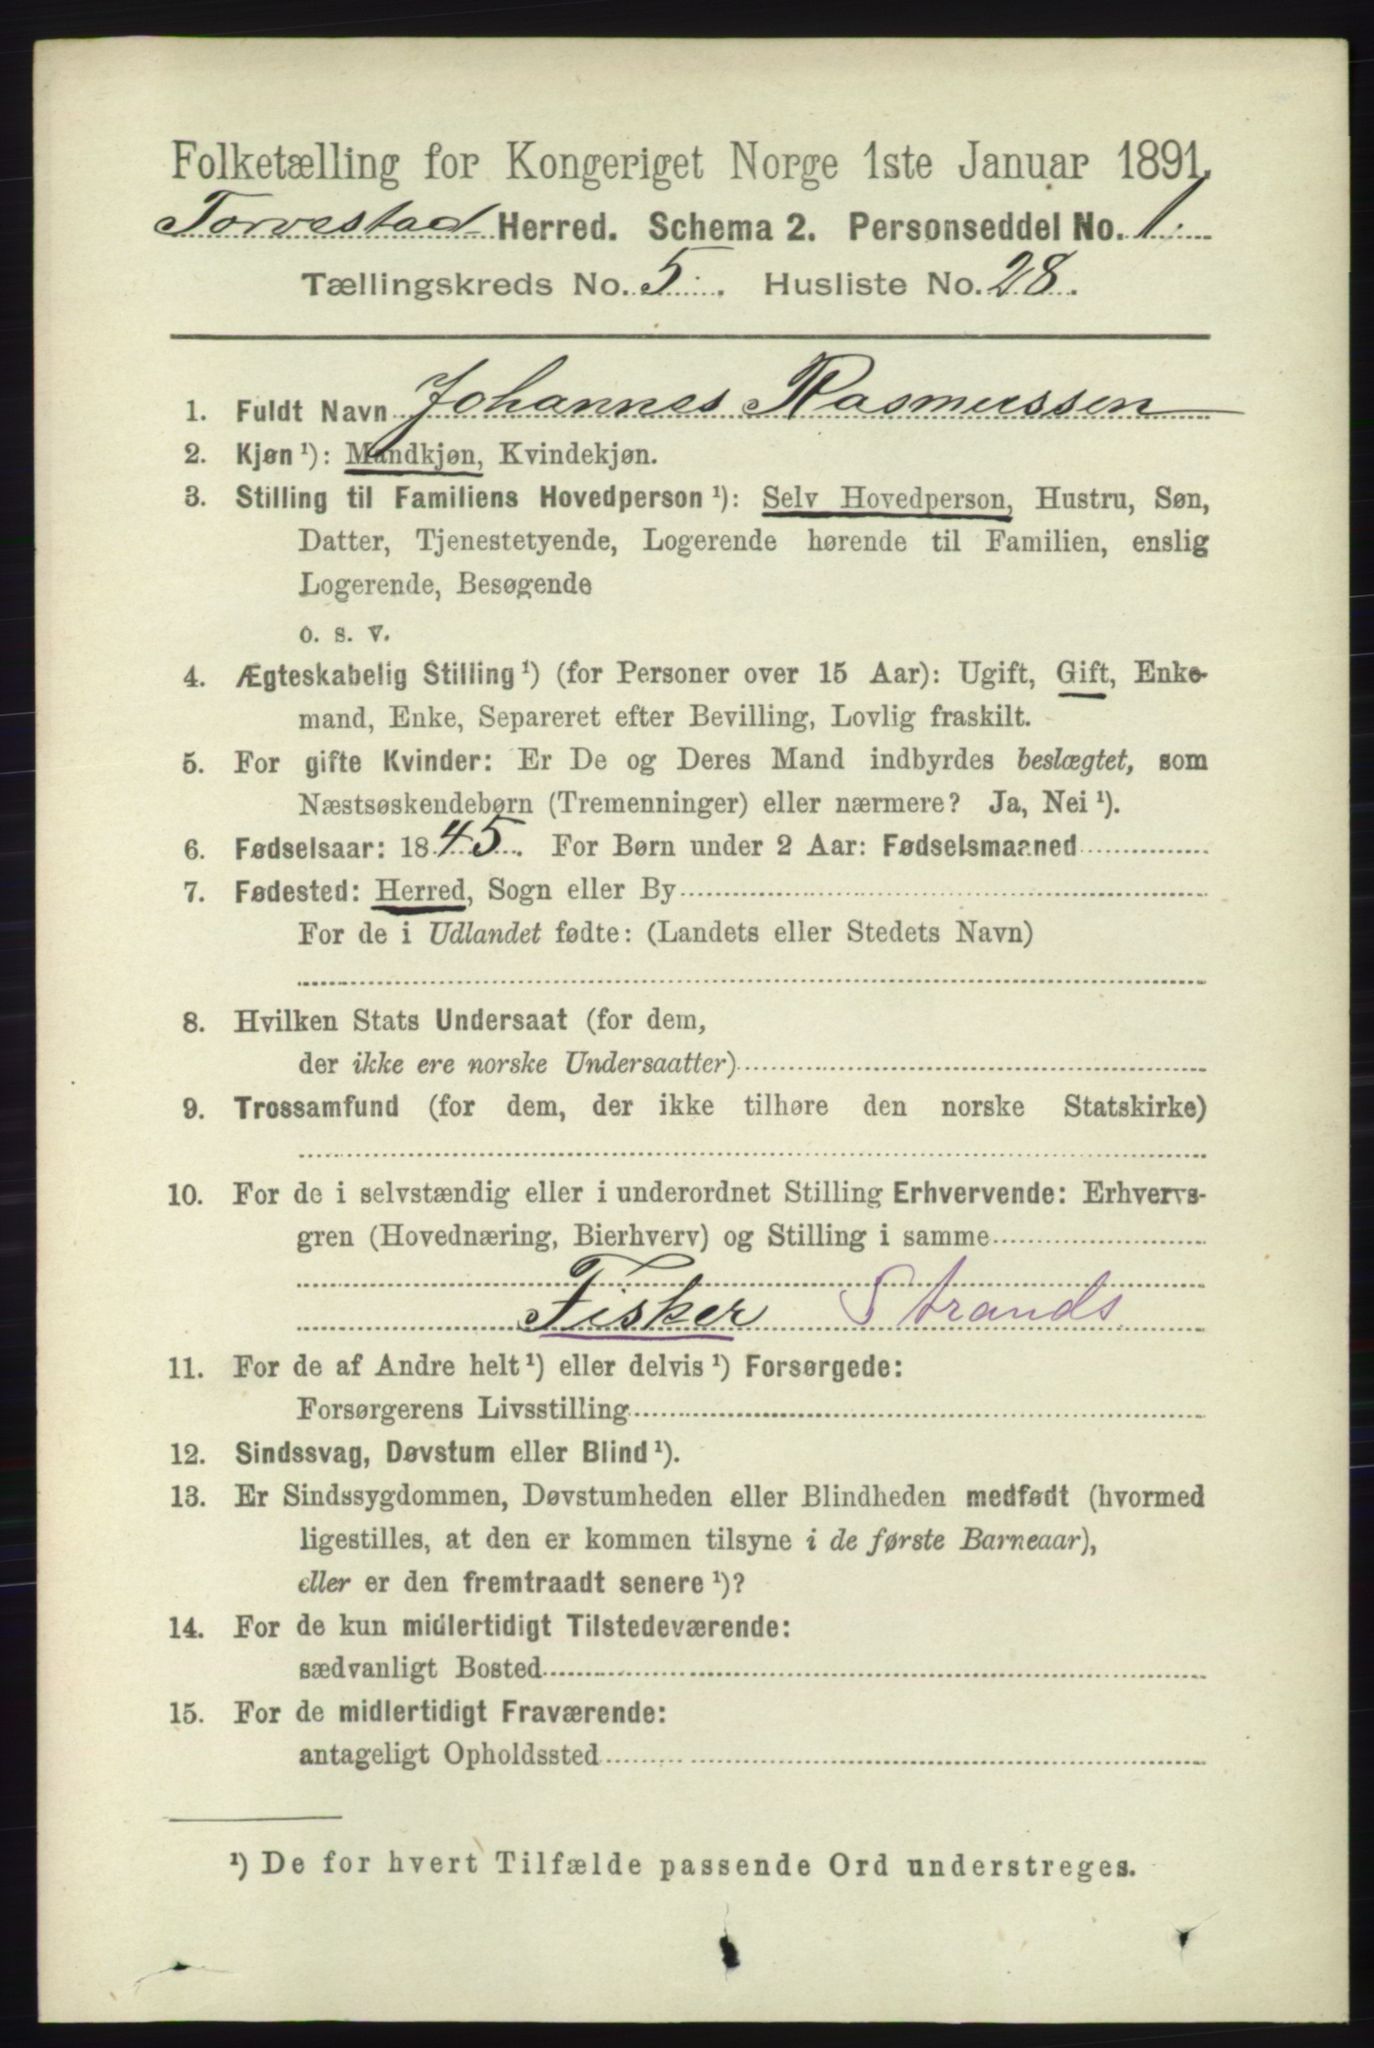 Folketælling for Kongeriget Norge 1ste Januar 1891.
Torvestad Herred. Schema 2. Personseddel No. 1.
Tællingskreds No. 5. Husliste No. 28.
1. Fuldt Navn Johannes Rasmussen
2. Kjøn ¹): Mandkjøn, Kvindekjøn.
3. Stilling til Familiens Hovedperson ¹): Selv Hovedperson, Hustru, Søn,
Datter, Tjenestetyende, Logerende hørende til Familien, enslig
Logerende, Besøgende
o. s. v.
4. Ægteskabelig Stilling ¹) (for Personer over 15 Aar): Ugift, Gift, Enke-
mand, Enke, Separeret efter Bevilling, Lovlig fraskilt.
5. For gifte Kvinder: Er De og Deres Mand indbyrdes beslægtet, som
Næstsøskendebørn (Tremenninger) eller nærmere? Ja, Nei ¹).
6. Fødselsaar: 1845. For Børn under 2 Aar: Fødselsmaaned
7. Fødested: Herred, Sogn eller By
For de i Udlandet fødte: (Landets eller Stedets Navn)
8. Hvilken Stats Undersaat (for dem,
der ikke ere norske Undersaatter)
9. Trossamfund (for dem, der ikke tilhøre den norske Statskirke)
10. For de i selvstændig eller i underordnet Stilling Erhvervende: Erhvervs-
gren (Hovednæring, Bierhverv) og Stilling i samme
Fisker Strands
11. For de af Andre helt ¹) eller delvis ¹) Forsørgede:
Forsørgerens Livsstilling
12. Sindssvag, Døvstum eller Blind ¹).
13. Er Sindssygdommen, Døvstumheden eller Blindheden medfødt (hvormed
ligestilles, at den er kommen tilsyne i de første Barneaar),
eller er den fremtraadt senere ¹)?
14. For de kun midlertidigt Tilstedeværende:
sædvanligt Bosted
15. For de midlertidigt Fraværende:
antageligt Opholdssted
¹) De for hvert Tilfælde passende Ord understreges.